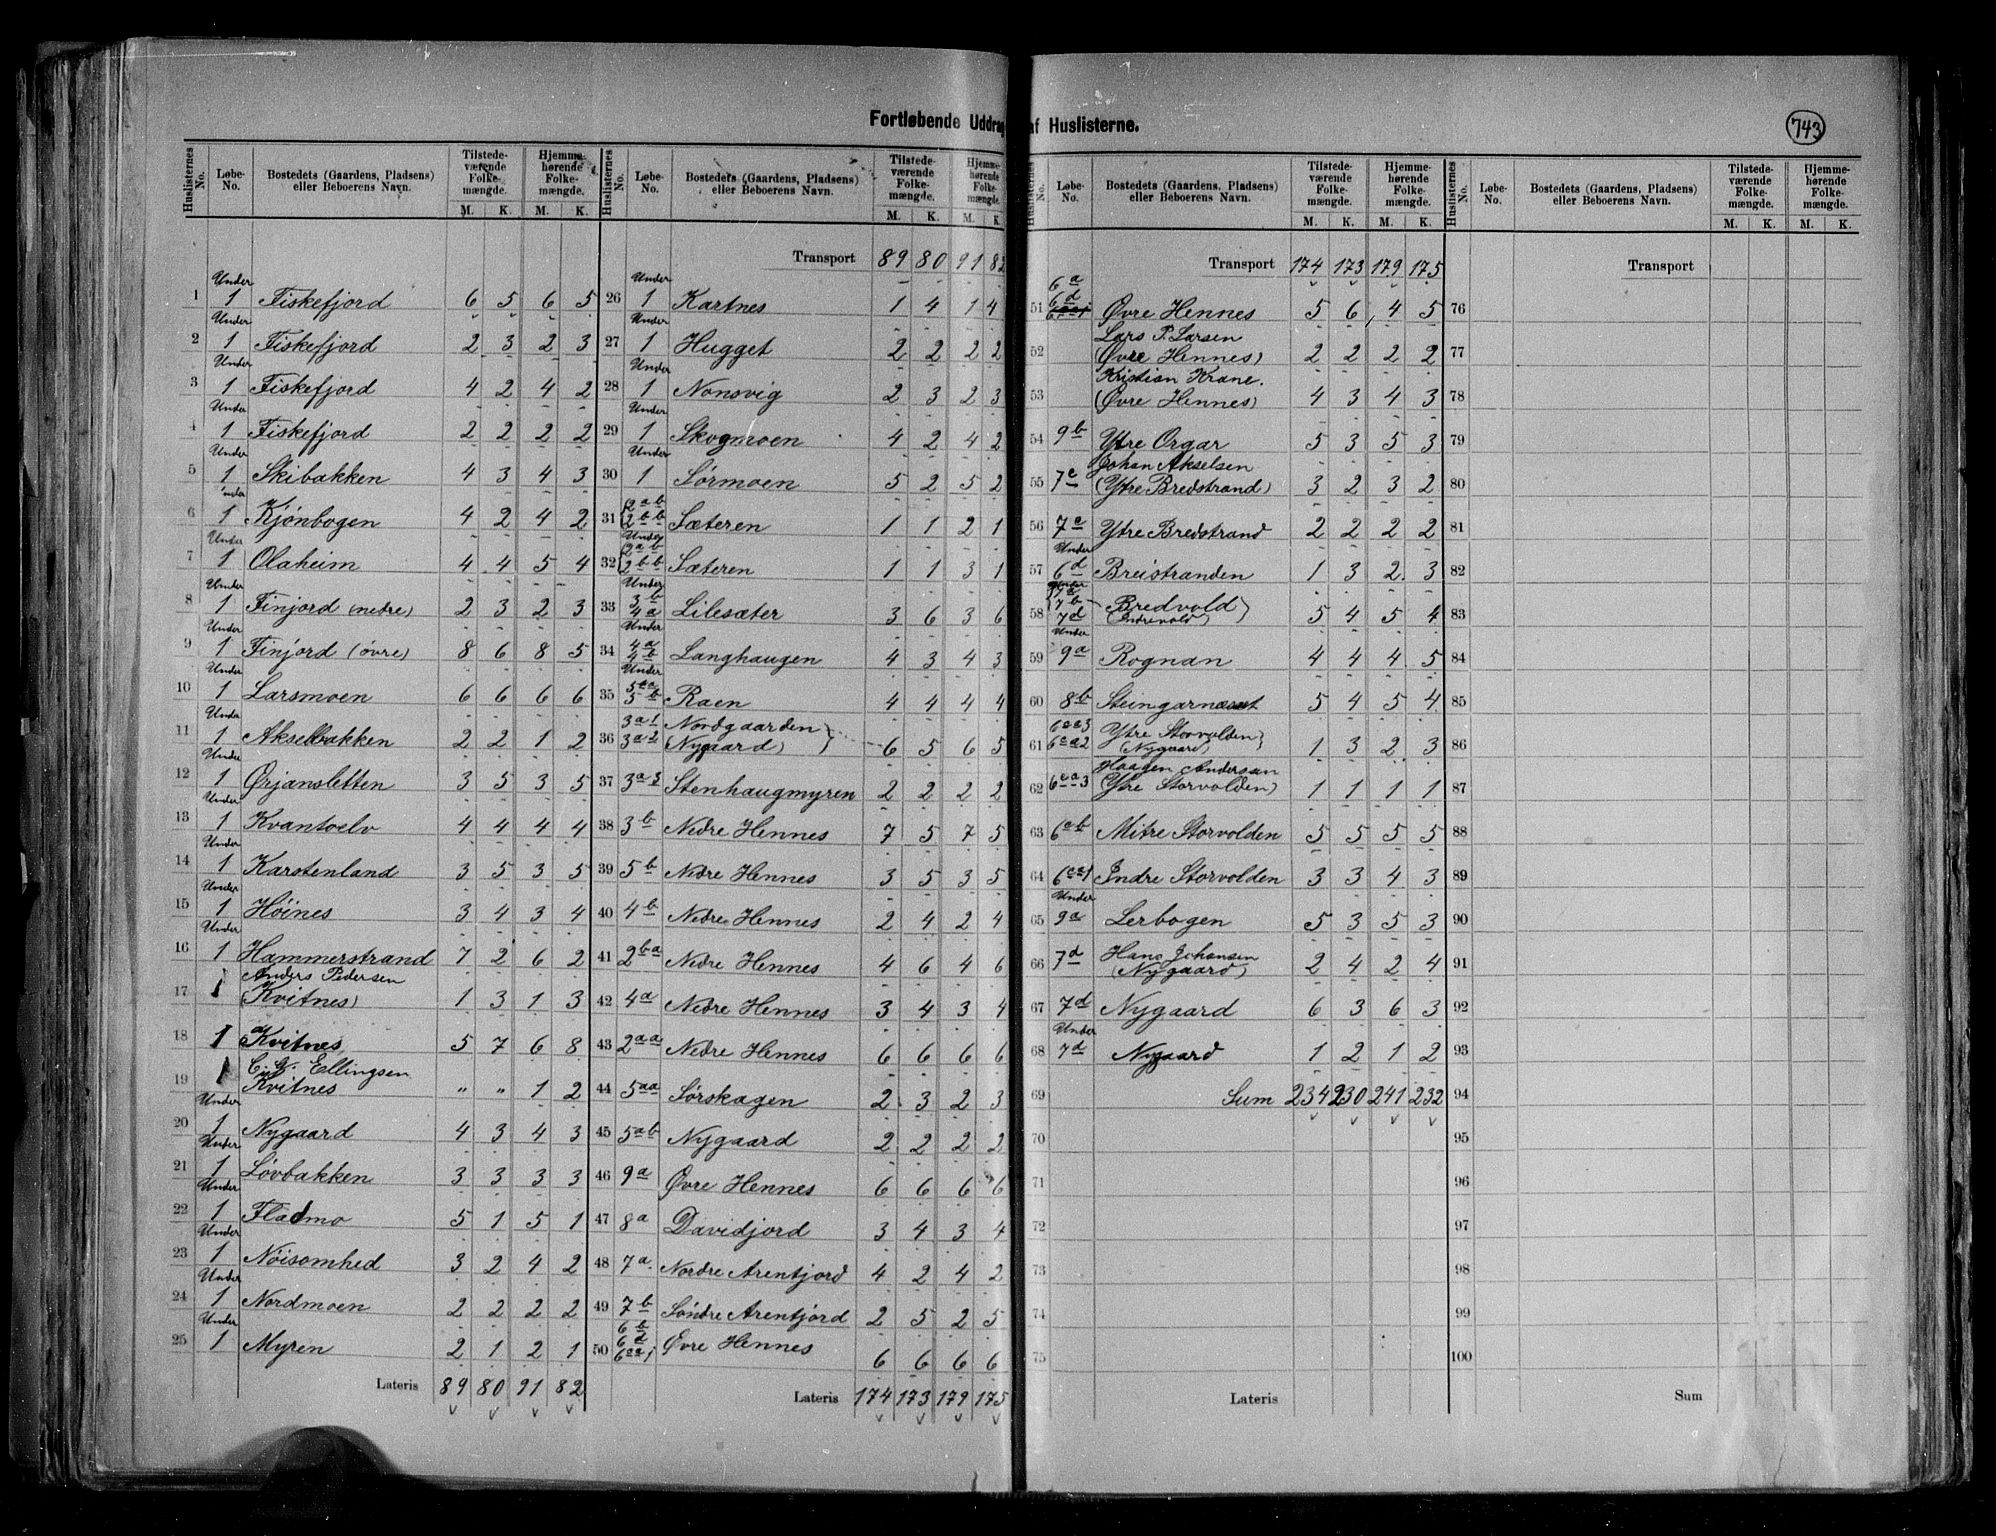 Fortløbende Uddrag af Huslisterne.
743
Huslisternes No. | Løbe-No. | Bostedets (Gaardens, Pladsens) eller Beboerens Navn. | Tilstedeværende Folkemængde. M. K. | Hjemmehørende Folkemængde. M. K.
1 Under 1 Fiskefjord 6 5 6 5
2 Under 1 Fiskefjord 2 3 2 3
3 Under 1 Fiskefjord 4 2 4 2
4 Under 1 Fiskefjord 2 2 2 2
5 Under 1 Skibakken 4 3 4 3
6 Under 1 Kjønbogen 4 2 4 2
7 Under 1 Olaheim 4 4 5 4
8 Under 1 Finjord (nedre) 2 3 2 3
9 Under 1 Finjord (øvre) 8 6 8 5
10 Under 1 Larsmoen 6 6 6 6
11 Under 1 Akselbakken 2 2 1 2
12 Under 1 Ørjansletten 3 5 3 5
13 Under 1 Kvantoelv 4 4 4 4
14 Under 1 Karstenland 3 5 3 5
15 Under 1 Høines 3 4 3 4
16 Under 1 Hammerstrand 7 2 6 2
17 1 Anders Pedersen (Kvitnes) 1 3 1 3
18 1 Kvitnes 5 7 6 8
19 1 Ellingsen Kvitnes " " 1 2
20 Under 1 Nygaard 4 3 4 3
21 Under 1 Løvbakken 3 3 3 3
22 Under 1 Fladmo 5 1 5 1
23 Under 1 Nøisomhed 3 2 4 2
24 Under 1 Nordmoen 2 2 2 2
25 Under 1 Myren 2 1 2 1
Lateris 89 80 91 82
Huslisternes No. | Løbe-No. | Bostedets (Gaardens, Pladsens) eller Beboerens Navn. | Tilstedeværende Folkemængde. M. K. | Hjemmehørende Folkemængde. M. K.
Transport 89 80 91 82
26 Under 1 Kartnes 1 4 1 4
27 Under 1 Hugget 2 2 2 2
28 Under 1 Nonsvig 2 3 2 3
29 Under 1 Skogmoen 4 2 4 2
30 Under 1 Sørmoen 5 2 5 2
31 2ab 2bb Sæteren 1 1 2 1
32 Under 2ab 2bb Sæteren 1 1 3 1
33 Under 3b 4a Lilesæter 3 6 3 6
34 Under 4a 4b Langhaugen 4 3 4 3
35 Under 5aa 5b Raen 4 4 4 4
36 3a1 3a2 Nordgaarden (Nygaard) 6 5 6 5
37 3a3 Stenhaugmyren 2 2 2 2
38 3b Nedre Hennes 7 5 7 5
39 5b Nedre Hennes 3 5 3 5
40 4b Nedre Hennes 2 4 2 4
41 2ba Nedre Hennes 4 6 4 6
42 4a Nedre Hennes 3 4 3 4
43 2aa Nedre Hennes 6 6 6 6
44 5aa Sørskagen 2 3 2 3
45 5ab Nygaard 2 2 2 2
46 9a Øvre Hennes 6 6 6 6
47 8a Davidjord 3 4 3 4
48 7a Nordre Arentjord 4 2 4 2
49 7b Søndre Arentjord 2 5 2 5
50 6b 6d 6aa1 Øvre Hennes 6 6 6 6
Lateris 174 173 179 175
Huslisternes No. | Løbe-No. | Bostedets (Gaardens, Pladsens) eller Beboerens Navn. | Tilstedeværende Folkemængde. M. K. | Hjemmehørende Folkemængde. M. K.
Transport 174 173 179 175
51 6a 6d Øvre Hennes 5 6 4 5
52 Lars P. Larsen (Øvre Hennes) 2 2 2 2
53 Kristian Krane. (Øvre Hennes) 4 3 4 3
54 9b Ytre Orgar 5 3 5 3
55 7c Johan Akselsen (Ytre Bredstrand) 3 2 3 2
56 7c Ytre Bredstrand 2 2 2 2
57 Under 6d Breistranden 1 3 2 3
58 Under 7a 7b 7d Bredvold (Indrevold) 5 4 5 4
59 Under 9a Rognan 4 4 4 5
60 8b Steingarnæset 5 4 5 4
61 6aa3 6aa2 Ytre Storvolden (Nygaard) 1 3 2 3
62 6aa3 Haagen Andersen (Ytre Storvolden) 1 1 1 1
63 6ab Mitre Storvolden 5 5 5 5
64 6aa1 Indre Storvolden 3 3 4 3
65 Under 9a Lerbogen 5 3 5 3
66 7d Hans Johansen (Nygaard) 2 4 2 4
67 7d Nygaard 6 3 6 3
68 Under 7d Nygaard 1 2 1 2
69 Sum 234 230 241 232
70
71
72
73
74
75
Lateris
Huslisternes No. | Løbe-No. | Bostedets (Gaardens, Pladsens) eller Beboerens Navn. | Tilstedeværende Folkemængde. M. K. | Hjemmehørende Folkemængde. M. K.
Transport
76
77
78
79
80
81
82
83
84
85
86
87
88
89
90
91
92
93
94
95
96
97
98
99
100
Sum